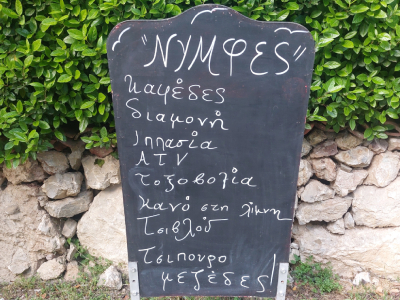 "ΝΥΜΦΕΣ"
Καφέδες
διαμονή
Ιππασία
ATV
τοξοβολία
κανό στη λίμνη
Τσιβλού
Τσιπουρο
μεζέδες!